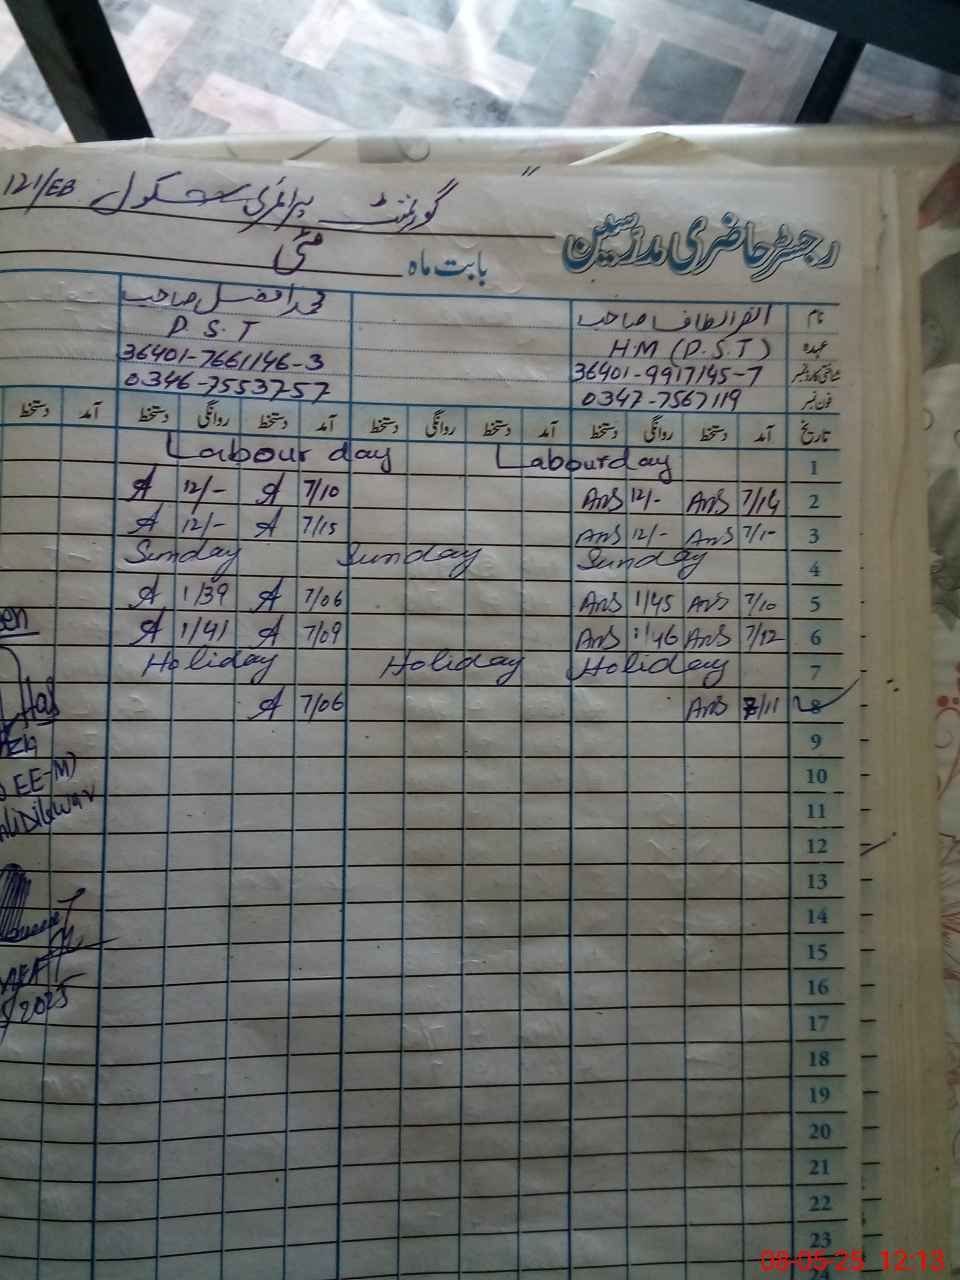 گورنمنٹ پرائمری سکول 121/EB
رجسٹر حاضری مدرسین
بابت ماہ مئی
نام الطاف صاحب محمد افضل صاحب
عہدہ H.M (P.S.T) P.S.T
شناختی کارڈ نمبر 36401-9917145-7 36401-7661146-3
فون نمبر 0347-7567119 0346-7553757
تاریخ آمد دستخط روانگی دستخط آمد دستخط روانگی دستخط آمد دستخط روانگی دستخط آمد دستخط
1 Labour day Labour day
2 7/14 Ans 12/- Ans 7/10 A 12/- A
3 7/1- Ans 12/- Ans 7/15 A 12/- A
4 Sunday Sunday Sunday
5 7/10 Ans 1/45 Ans 7/06 A 1/39 A
6 7/12 Ans 1/46 Ans 7/09 A 1/41 A
7 Holiday Holiday Holiday
8 7/11 Ans 7/06 A
9
10
11
12
13
14
15
16
17
18
19
20
21
22
23
EE-M)
2025
08-05-25 12:13